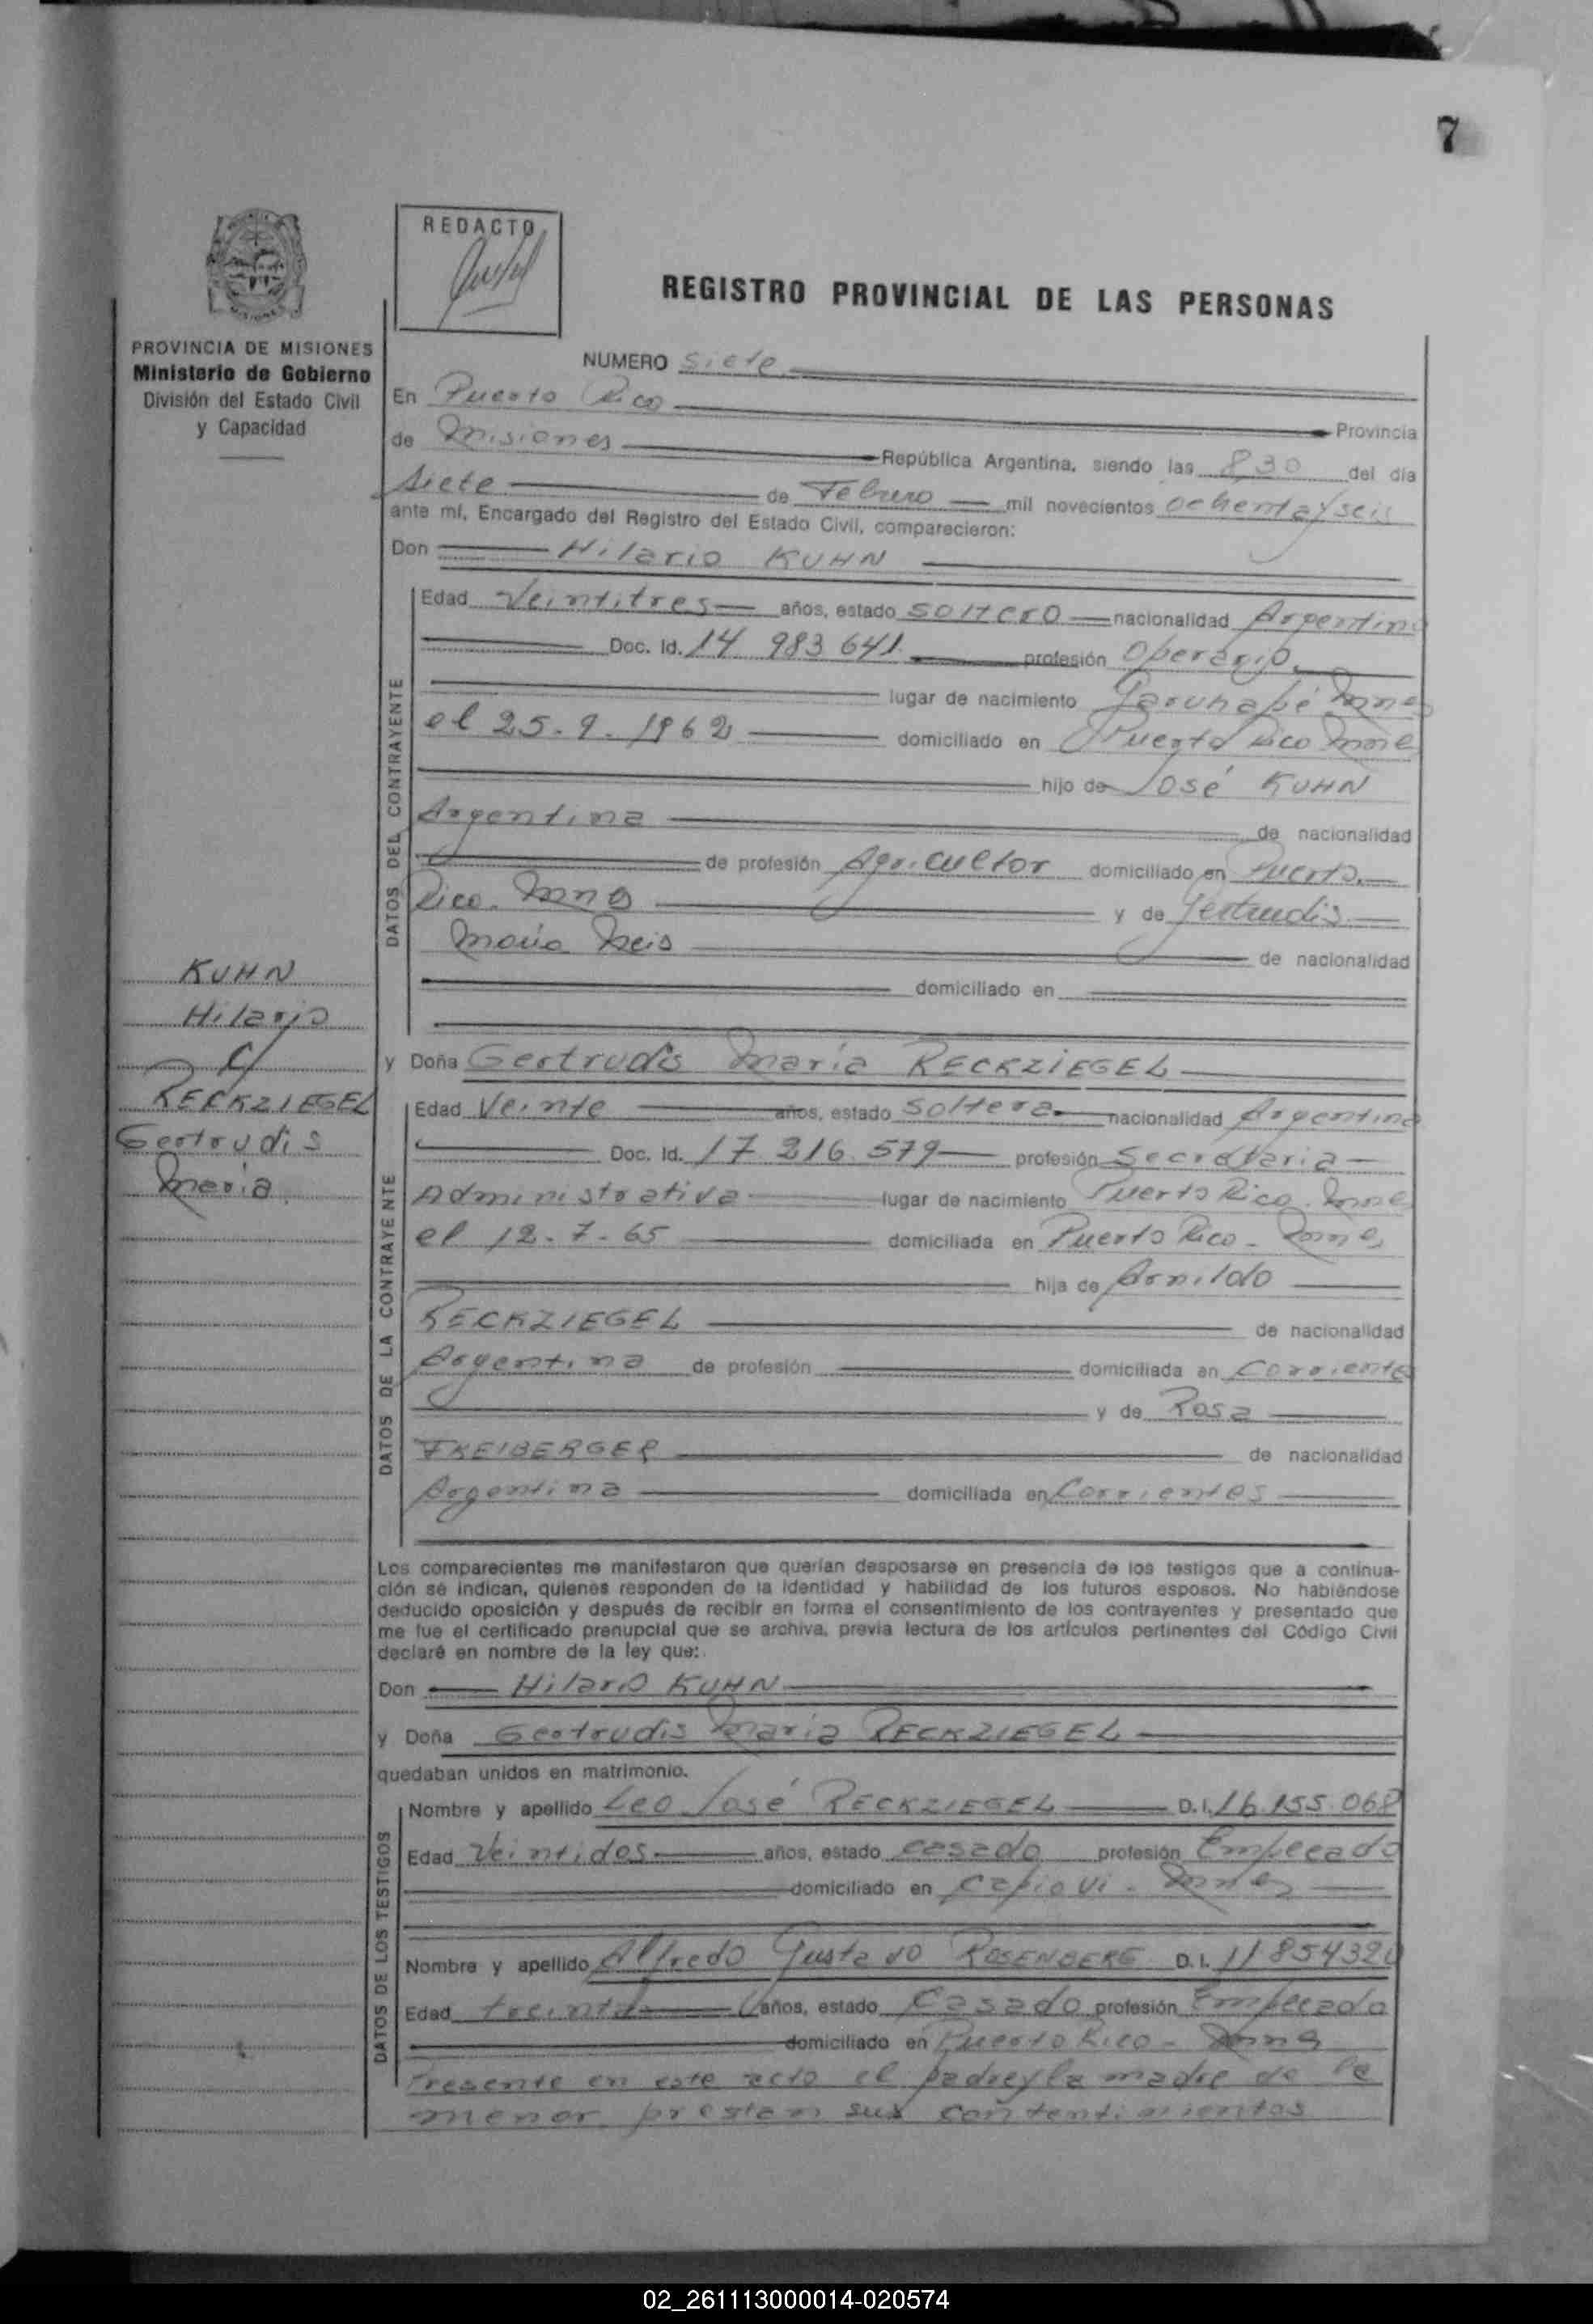 7
REDACTO
REGISTRO PROVINCIAL DE LAS PERSONAS
PROVINCIA DE MISIONES
Ministerio de Gobierno
División del Estado Civil
y Capacidad
NUMERO Siete
En Puerto Rico Provincia
de Misiones República Argentina, siendo las 8,30 del día
siete de Febrero mil novecientos ochenta y seis
ante mí, Encargado del Registro del Estado Civil, comparecieron:
Don Hilario KUHN
DATOS DEL CONTRAYENTE
Edad Veintitres años, estado soltero nacionalidad Argentina
Doc. Id. 14 983 641 profesión Operario
lugar de nacimiento Garuhapé Mnes
el 25.9.1962 domiciliado en Puerto Rico Mnes
hijo de José KUHN
Argentina de nacionalidad
de profesión Agricultor domiciliado en Puerto
Rico. Mnes y de Gertrudis
Maria de nacionalidad
domiciliado en
KUHN
Hilario
c/
RECKZIEGEL
Gertrudis
Maria.
y Doña Gertrudis Maria RECKZIEGEL
DATOS DE LA CONTRAYENTE
Edad Veinte años, estado Soltera nacionalidad Argentina
Doc. Id. 17.216.579 profesión Secretaria
Administrativa lugar de nacimiento Puerto Rico. Mnes
el 12-7-65 domiciliada en Puerto Rico - Mnes
hija de Arnildo
RECKZIEGEL de nacionalidad
Argentina de profesión domiciliada en Corrientes
y de Rosa
FREIBERGER de nacionalidad
Argentina domiciliada en Corrientes
Los comparecientes me manifestaron que querían desposarse en presencia de los testigos que a continua-
ción se indican, quienes responden de la identidad y habilidad de los futuros esposos. No habiéndose
deducido oposición y después de recibir en forma el consentimiento de los contrayentes y presentado que
me fue el certificado prenupcial que se archiva, previa lectura de los artículos pertinentes del Código Civil
declaré en nombre de la ley que:
Don Hilario KUHN
y Doña Gertrudis Maria RECKZIEGEL
quedaban unidos en matrimonio.
DATOS DE LOS TESTIGOS
Nombre y apellido Leo José RECKZIEGEL D.I. 16.155.068
Edad Veintidos años, estado casado profesión Empleado
domiciliado en Capiovi - Mnes
Nombre y apellido Alfredo Gustavo ROSENBERG D.I. 11854320
Edad treinta años, estado Casado profesión Empleado
domiciliado en Puerto Rico - Mnes
Presente en este acto el padre y la madre de la
menor prestan sus contentimientos
02_261113000014-020574